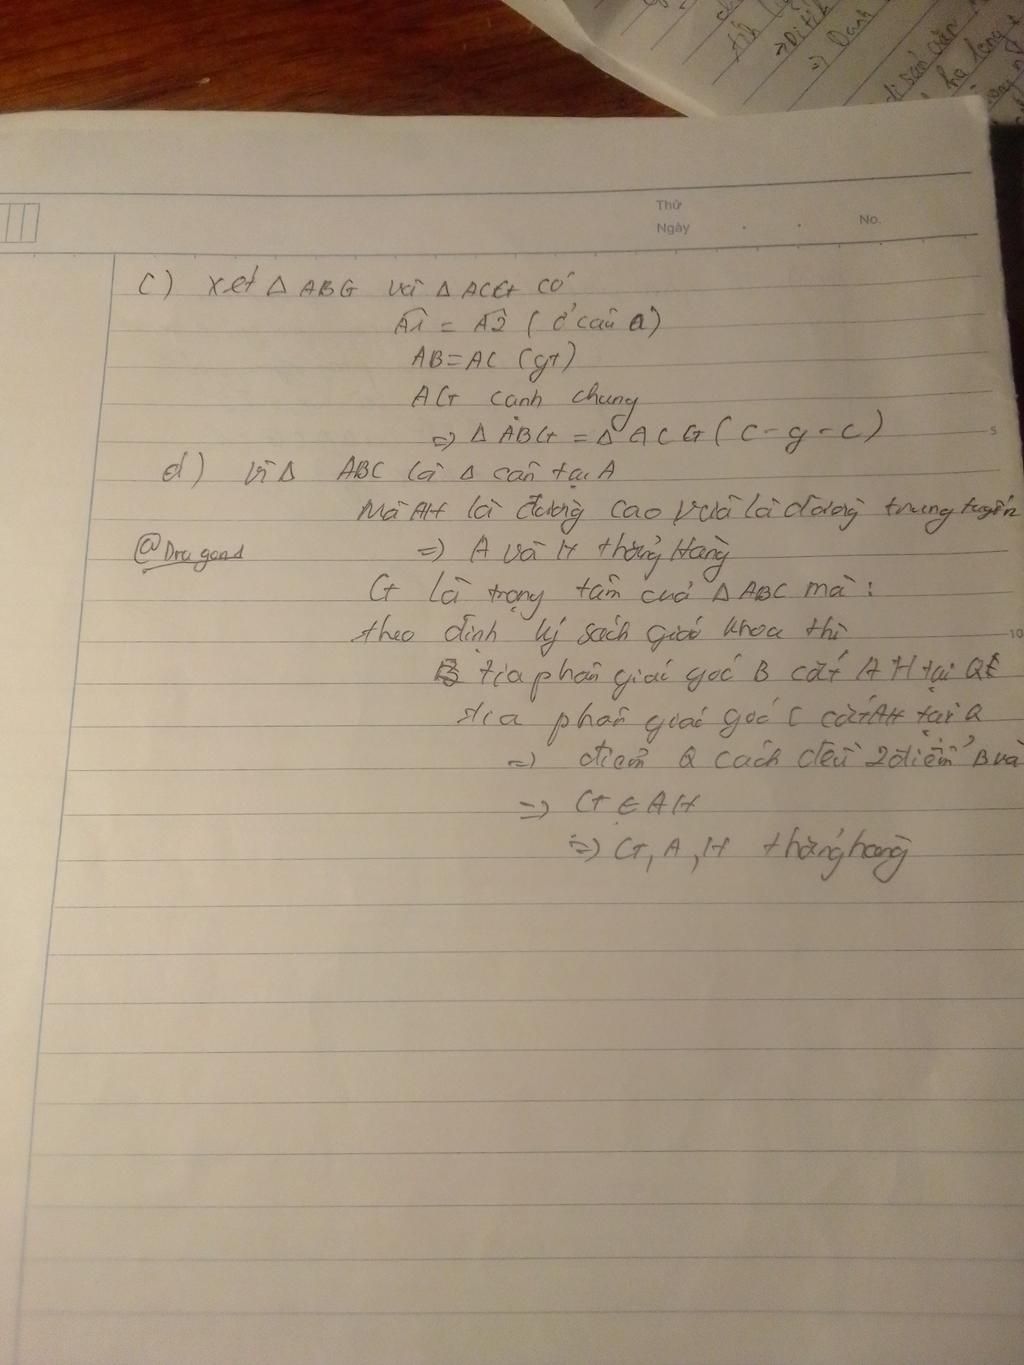 Thứ
Ngày . . No.
c) xét Δ ABG và Δ ACG có
A1 = A2 (ở câu a)
AB=AC (gt)
AG cạnh chung
=> Δ ABG = Δ ACG (c-g-c)
5
d) vì Δ ABC là Δ cân tại A
Mà AH là đường cao vừa là đường trung tuyến
@Dragond => A và H thẳng Hàng
G là trọng tâm của Δ ABC mà :
theo định lý sách giáo khoa thì
10
tia phân giác góc B cắt AH tại Q
tia phân giác góc C cắt AH tại Q
=> điểm Q cách đều 2 điểm B và
=> G ∈ AH
=> G, A, H thẳng hàng
di sản văn
hạ long
=> Danh